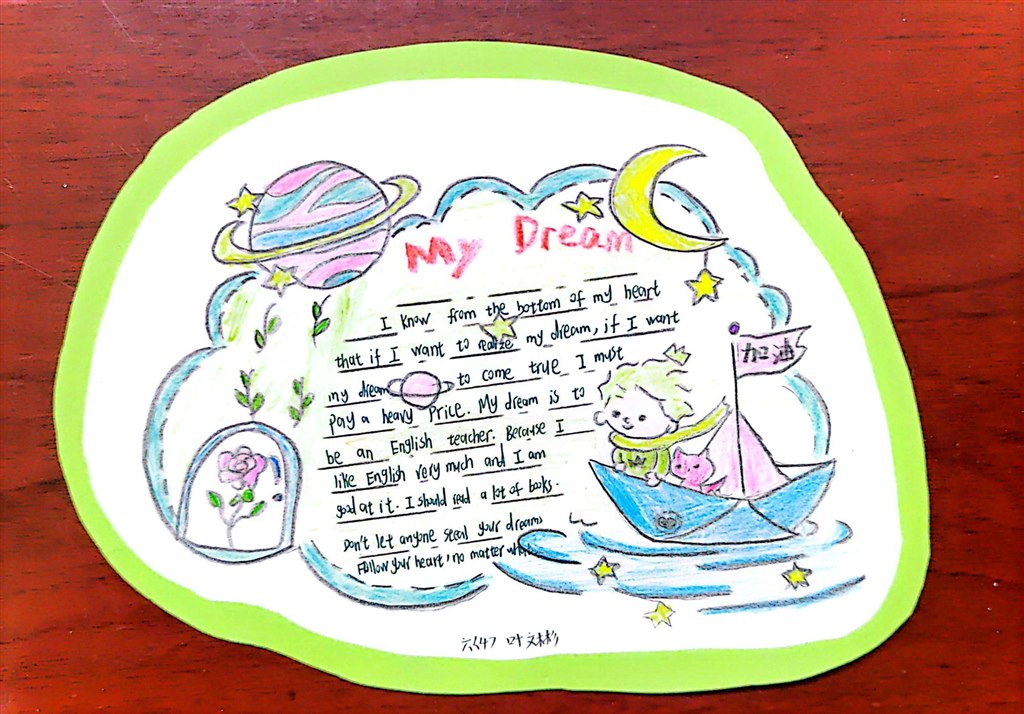 My Dream
I know from the bottom of my heart
that if I want to realize my dream, if I want
my dream to come true, I must
pay a heavy price. My dream is to
be an English teacher. Because I
like English very much and I am
good at it. I should read a lot of books.
Don't let anyone steal your dreams
Follow your heart, no matter what
加油
六(4) 叶文彬